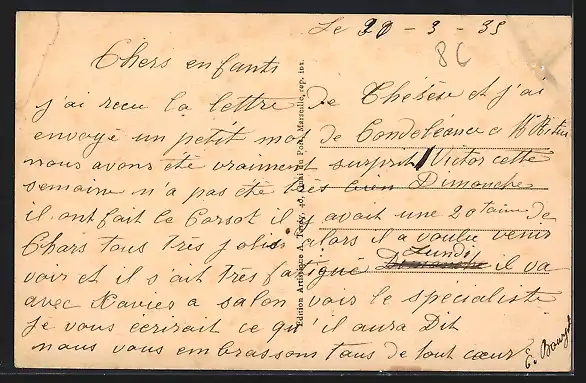 Le 20 - 3 - 35
86
Chers enfants
j'ai recu la lettre de Thésèse et j'ai
envoyé un petit mot de Condoléance a Mr
nous avons été vraiment surprit Victor cette
semaine n'a pas été très bien Dimanche
il ont fait le Corsot il y avait une 20taine de
Chars tous très jolis alors il a voulu venir
voir et il s'ait très fatigué Lundi il va
avec Xavier a salon voir le spécialiste
je vous écrirait ce qu'il aura Dit
nous vous embrassons tous de tout cœur
E. Bouzol
Edition Artistique A. Tardy, Quai du Port, Marseille, rep. int.